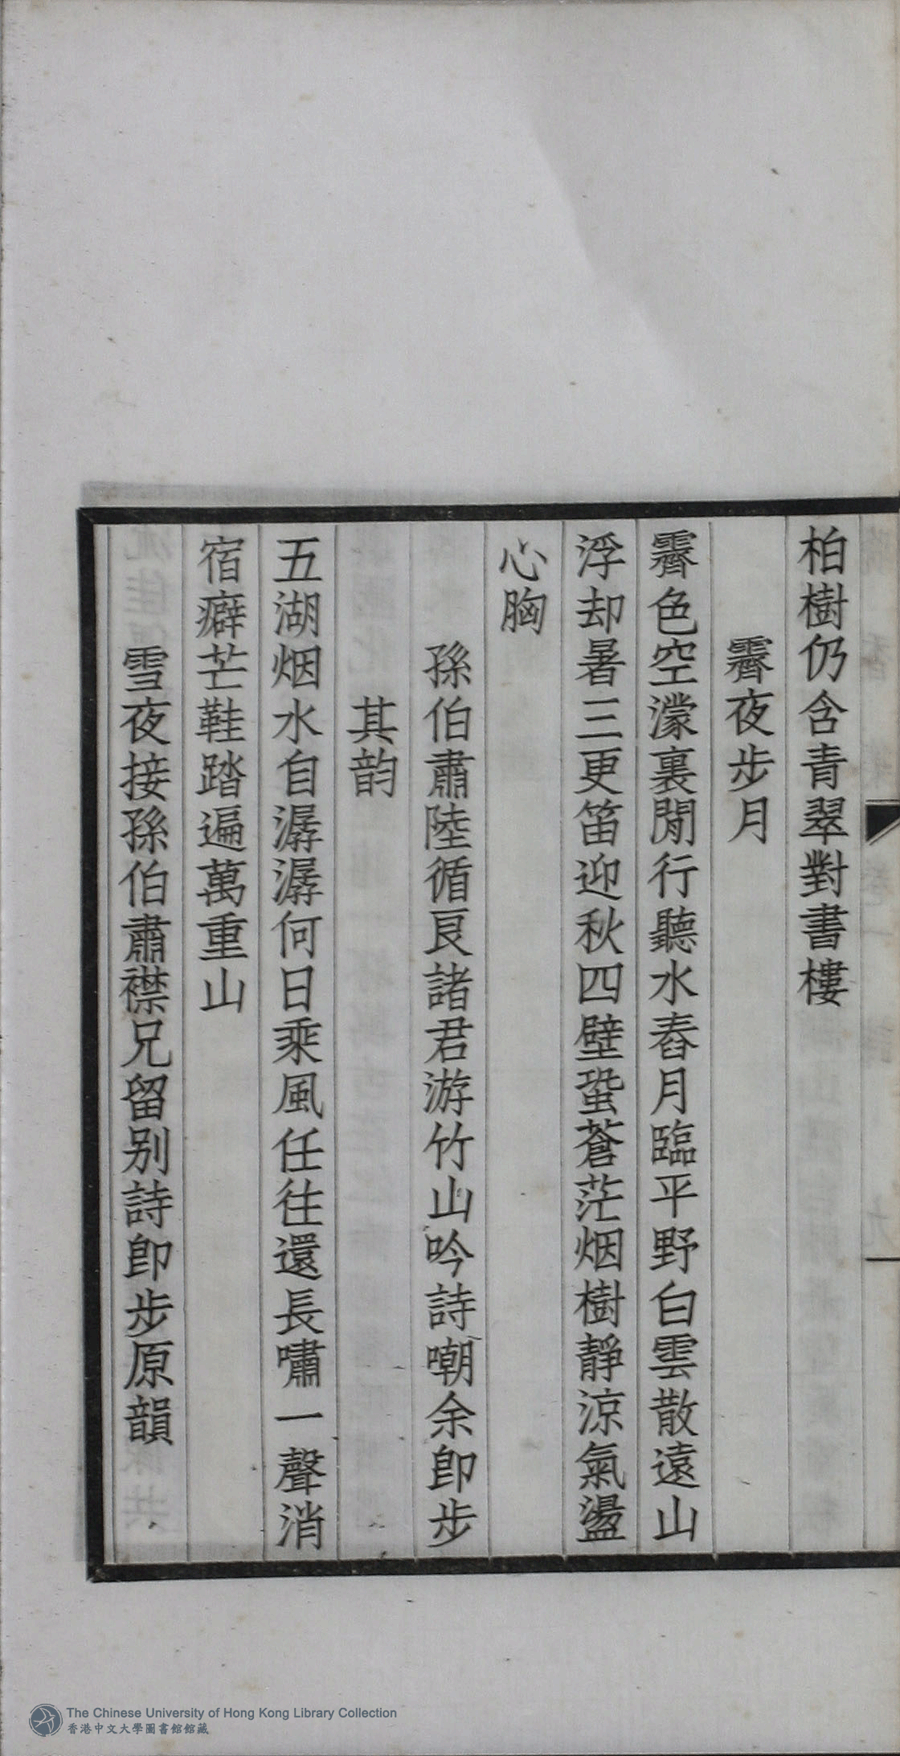 柏樹仍含青翠對書樓
霽夜步月
霽色空濛裏閒行聽水舂月臨平野白雲散遠山
浮却暑三更笛迎秋四壁蛩蒼茫烟樹靜涼氣盪
心胸
孫伯肅陸循艮諸君游竹山吟詩嘲余即步
其韵
五湖烟水自潺潺何日乘風任往還長嘯一聲消
宿癖芒鞋踏遍萬重山
雪夜接孫伯肅襟兄留别詩即步原韻
The Chinese University of Hong Kong Library Collection
香港中文大學圖書館館藏